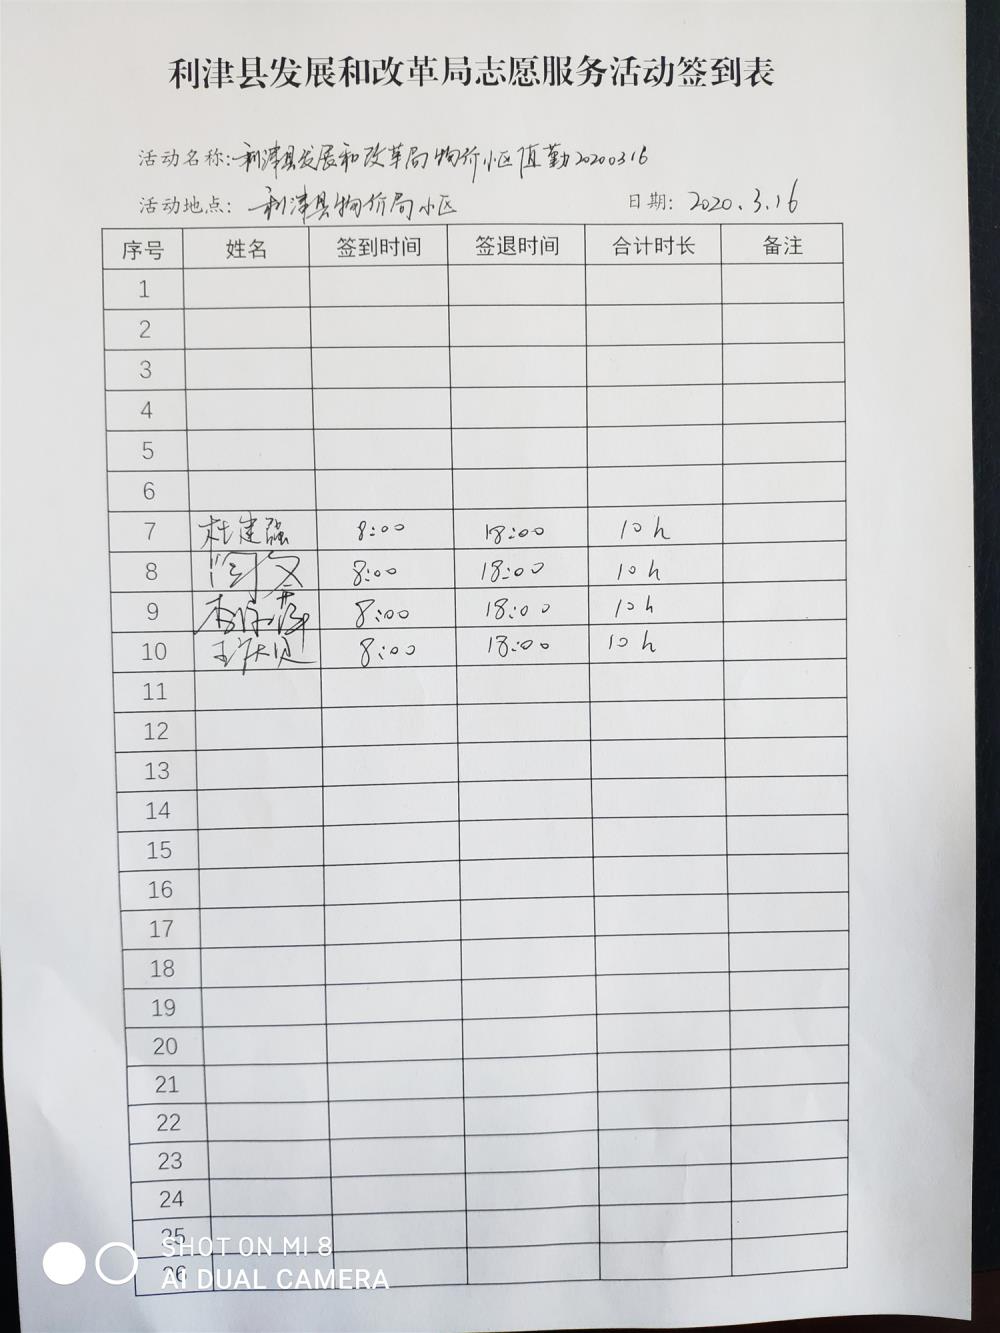 利津县发展和改革局志愿服务活动签到表
活动名称:利津县发展和改革局物价小区值勤20200316
活动地点: 利津县物价局小区 日期: 2020.3.16
序号 姓名 签到时间 签退时间 合计时长 备注
1
2
3
4
5
6
7 杜建强 8:00 18:00 10h
8 8:00 18:00 10h
9 8:00 18:00 10h
10 8:00 18:00 10h
11
12
13
14
15
16
17
18
19
20
21
22
23
24
25
26
SHOT ON MI 8
AI DUAL CAMERA